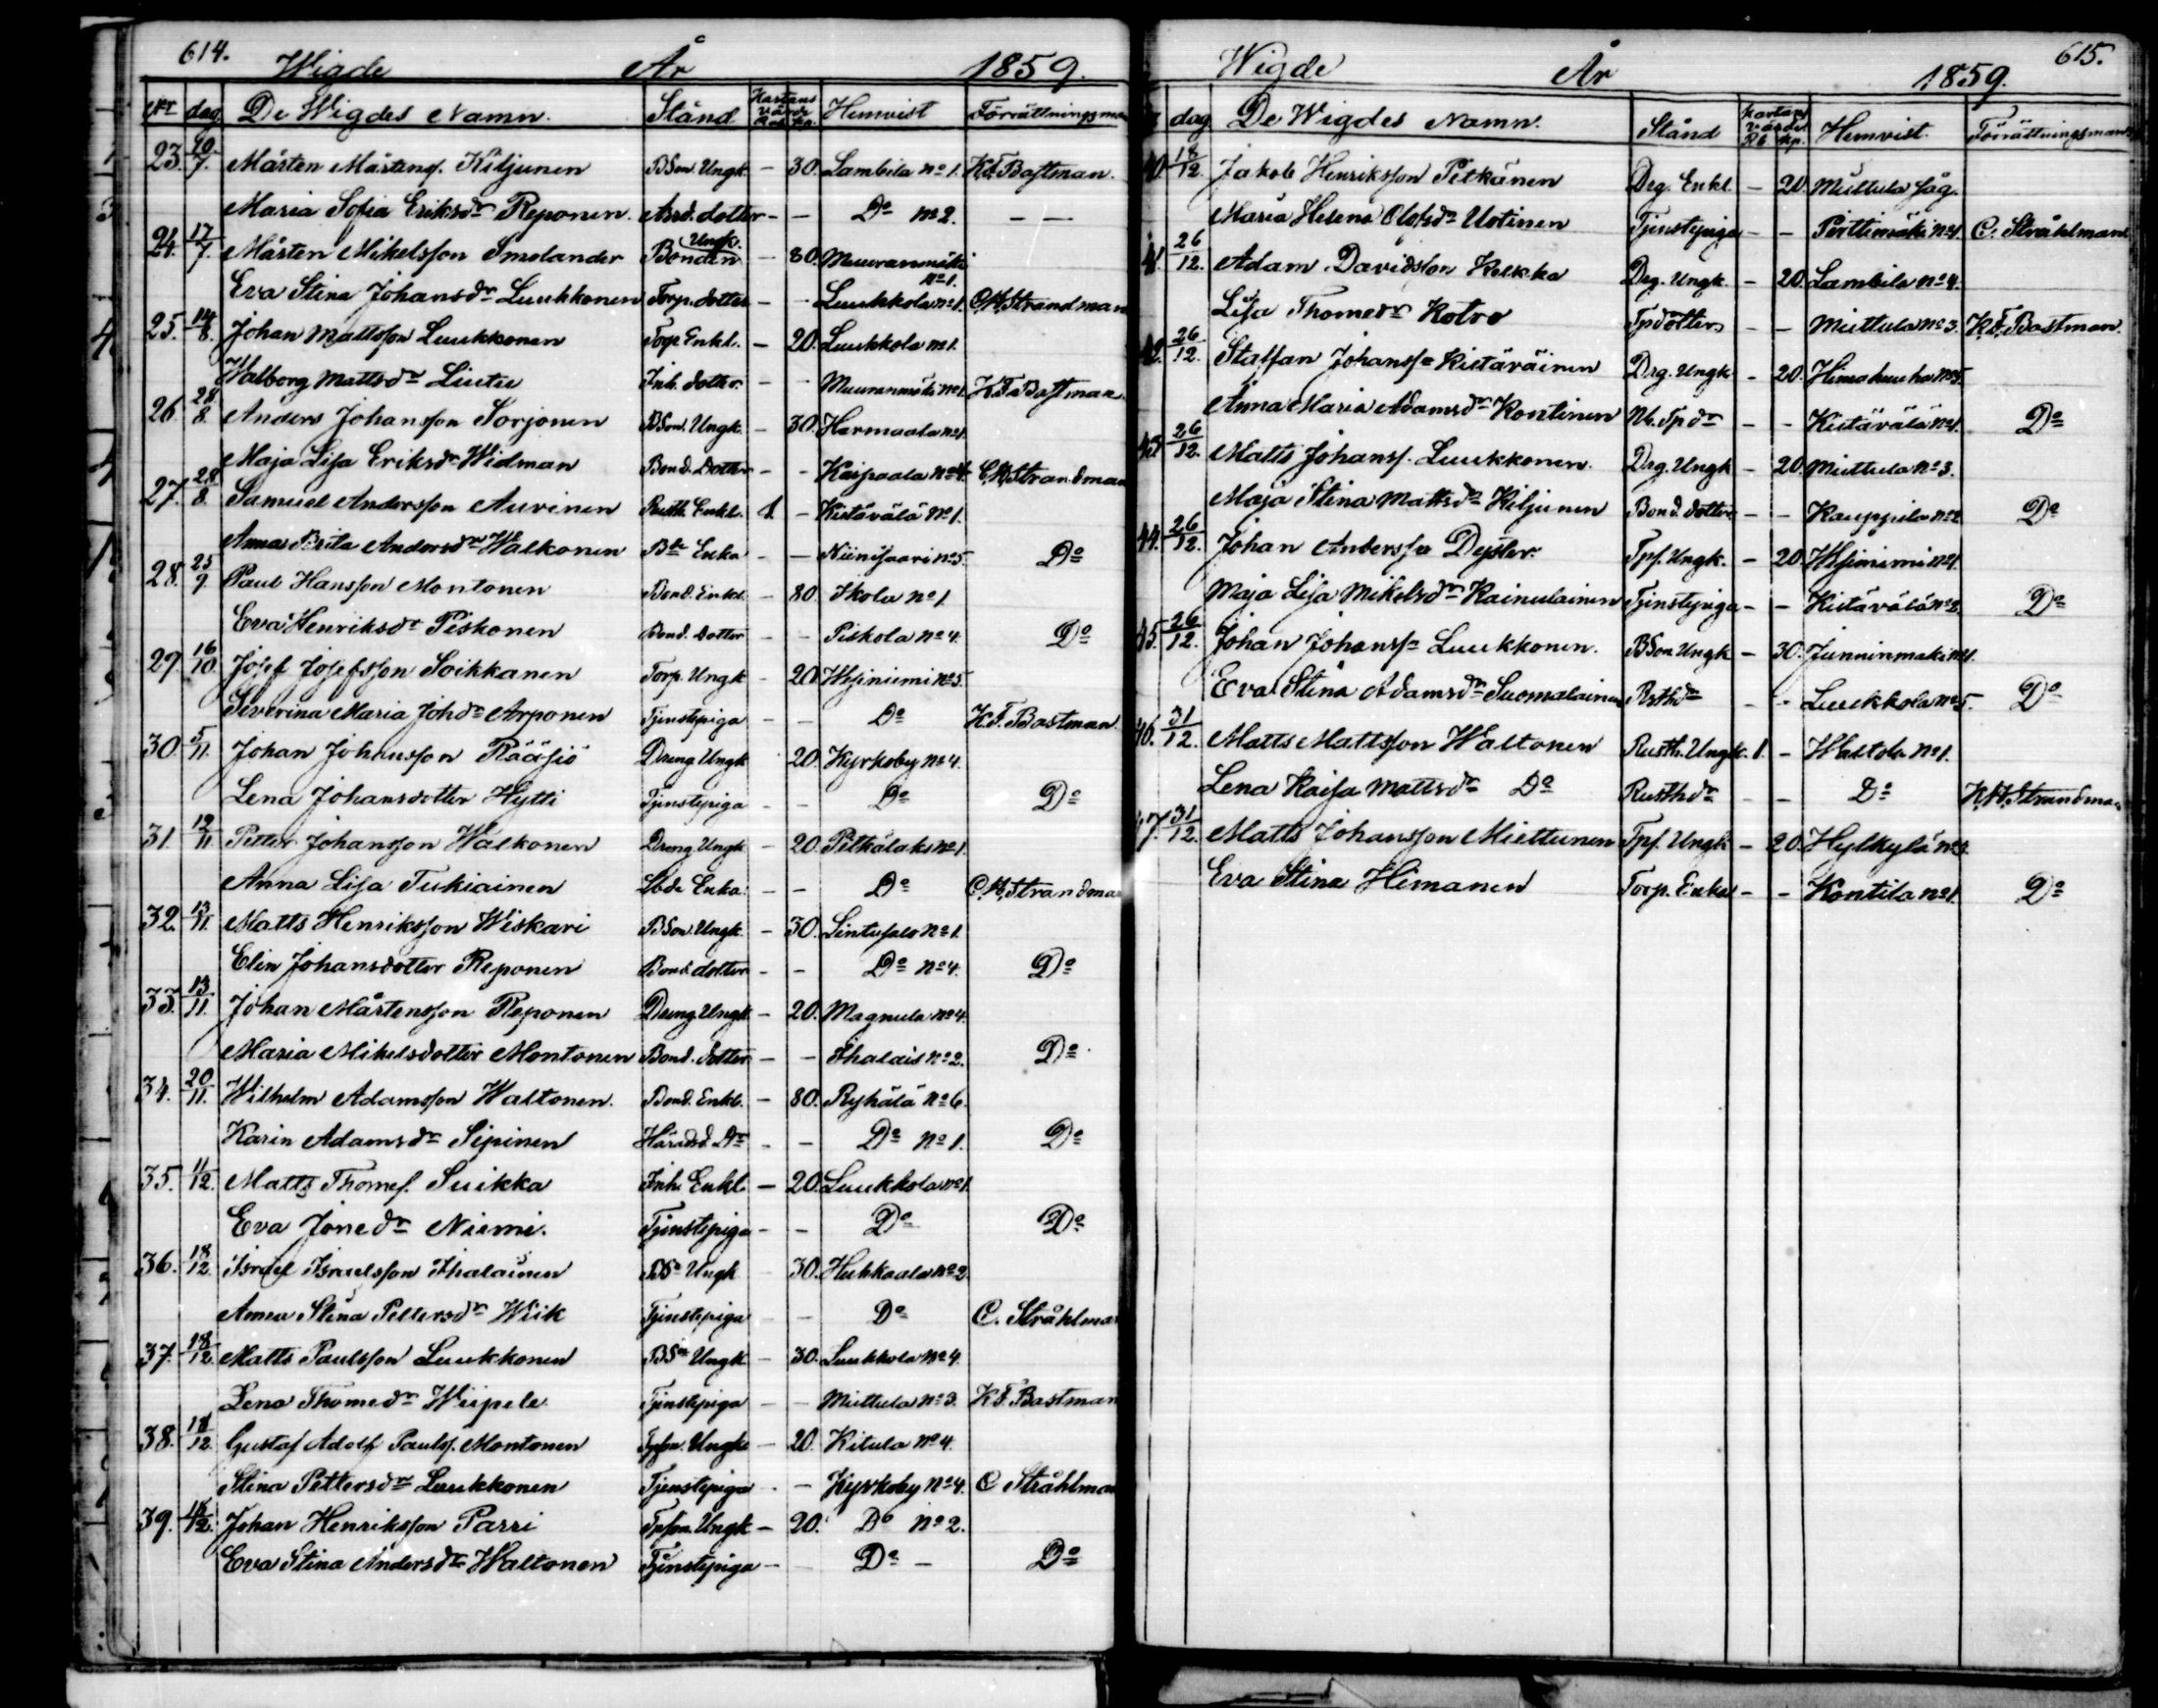 614. Wigde År 1859.
Nr dag De Wigdes Namn. Stånd Kartans värde Rub. Ko. Hemvist Förrättningsman
23. 10/7. Mårten Mårtens. Kiljunen BSon. Ungk. – 30. Lambila No 1. K.F. Bastman.
Maria Sofia Eriksdr Reponen. dotter – – Do No 2. – –
24. 17/7. Mårten Mikelsson Smolander Bonden Ungk. – 80. Muuranmäki No 1.
Eva Stina Johansdr Luukkonen Torp. dotter – – Luukkola No 1. C.H. Strandman
25. 14/8. Johan Mattsson Luukkonen Torp. Enkl. – 20. Luukkola No 1.
Walborg Mattsdr Liutu Inh. dotter – – Muuranmäki No 1. K.F. Bastman.
26. 28/8. Anders Johansson Sorjonen BSon. Ungk. – 30. Harmaala No 1.
Maja Lisa Eriksdr Widman Bond. Dotter – – Kaipaala No 4. C.H. Strandman
27. 28/8. Samuel Andersson Auvinen Rusth. Enkl. 1. – Kietävälä No 1.
Anna Brita Andersdr Walkonen Bde Enka – – Niinisaari No 5. Do
28. 25/9. Paul Hansson Montonen Bond. Enkl. – 80. Ikola No 1.
Eva Henriksdr Piskonen Bond. Dotter – – Piskola No 4. Do
29. 16/10. Josef Josefsson Soikkanen Torp. Ungk – 20. No 5.
Severina Maria Johdr Arponen Tjenstepiga – – Do K.F. Bastman.
30. 5/11. Johan Johansson Rääsiö Dreng Ungk 20. Kyrkoby No 4.
Lena Johansdotter Hytti Tjenstepiga – – Do Do
31. 12/11. Petter Johansson Walkonen Dreng Ungk – 20. Pitkälaks No 1.
Anna Lisa Tukiainen Enka – – Do C.H. Strandman
32. 13/11. Matts Henriksson Wiskari BSon. Ungk. – 30. Lintusalo No 1.
Elin Johansdotter Reponen Bond. dotter – – Do No 4. Do
33. 13/11. Johan Mårtensson Reponen Dreng Ungk – 20. Magnula No 4.
Maria Mikelsdotter Montonen Bond. dotter – – Ihalais No 2. Do
34. 20/11. Wilhelm Adamsson Waltonen. Bond. Enkl. – 80. Ryhälä No 6.
Karin Adamsdr Sipinen Häradsd. Dr – – Do No 1. Do
35. 11/12. Matts Thomes. Suikka Inh. Enkl. – 20. Luukkola No 1.
Eva Jönedr Niemi. Tjenstepiga – – Do Do
36. 18/12. Israel Israelsson Ihalainen BSn Ungk 30. Hukkaala No 2.
Anna Stina Pettersdr Wiik Tjenstepiga – – Do C. Stråhlman
37. 18/12. Matts Paulsson Luukkonen BSon Ungk – 30. Luukkola No 4.
Lena Thomedr Wiipele Tjenstepiga – – Miettula No 3. K.F. Bastman
38. 18/12. Gustaf Adolf Pauls. Montonen Tpson. Ungk – 20. Kitula No 4.
Stina Pettersdr Luukkonen Tjenstepiga – – Kyrkoby No 4. C Stråhlman
39. 18/12. Johan Henriksson Parri Tpson. Ungk – 20. Do No 2.
Eva Stina Andersdr Waltonen Tjenstepiga – – Do – Do
615. Wigde År 1859.
dag De Wigdes Namn. Stånd Kartans värde Rb. kp. Hemvist. Förrättningsman
40. 18/12. Jakob Henriksson Pitkänen Drg. Enkl. – 20. Miettula såg.
Maria Helena Olofsdr Uotinen Tjenstepiga – – Perttimäki No 1. C. Stråhlman
41. 26/12. Adam Davidsson Kekka Drg. Ungk. – 20. Lambila No 4.
Lisa Thomedr Kotro Tpdotter – – Miettula No 3. K.F. Bastman.
42. 26/12. Staffan Johanss. Kietäväinen Drg. Ungk. – 20. No 5.
Anna Maria Adamsdr Kontinen Nb. Tpdr – – Kietävälä No 1. Do
43. 26/12. Matts Johans. Luukkonen. Drg. Ungk – 20. Miettula No 3.
Maja Stina Mattsdr Kiljunen Bond. dotter – – Kauppila No 2. Do
44. 26/12. Johan Anderssn Dejsler. Tps. Ungk. – 20. No 1.
Maja Lisa Mikelsdr Kainulainen Tjenstepiga – – Kietävälä No 2. Do
45. 26/12. Johan Johanss. Luukkonen. BSon Ungk – 30. Junninmäki No 1.
Eva Stina Adamsdr Suomalainen Rsthdr – – Luukkola No 5. Do
46. 31/12. Matts Mattsson Waltonen Rusth. Ungk. 1. – Waltola No 1.
Lena Kaisa Mattsdr Do Rusthdr – – Do Strandman
47. 31/12. Matts Johansson Miettunen Tps. Ungk – 20. Hylkylä No 3.
Eva Stina Himanen Torp. Enka – – Kontila No 1. Do